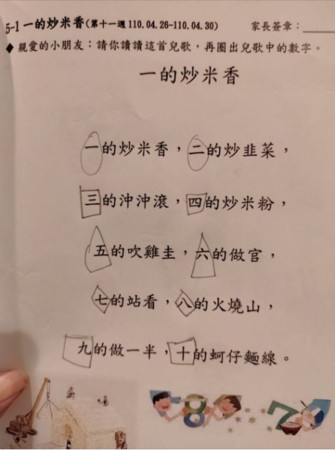 5-1 一的炒米香(第十一週 110.04.26-110.04.30) 家長簽章:
◆ 親愛的小朋友:請你讀讀這首兒歌,再圈出兒歌中的數字。
一的炒米香
一的炒米香,二的炒韭菜,
三的沖沖滾,四的炒米粉,
五的吹雞圭,六的做官,
七的站看,八的火燒山,
九的做一半,十的蚵仔麵線。
8 7